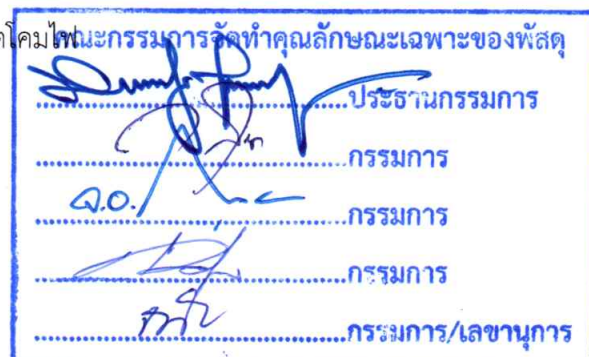 โคมไฟ
คณะกรรมการจัดทำคุณลักษณะเฉพาะของพัสดุ
ประธานกรรมการ
กรรมการ
จ.อ. กรรมการ
กรรมการ
กรรมการ/เลขานุการ